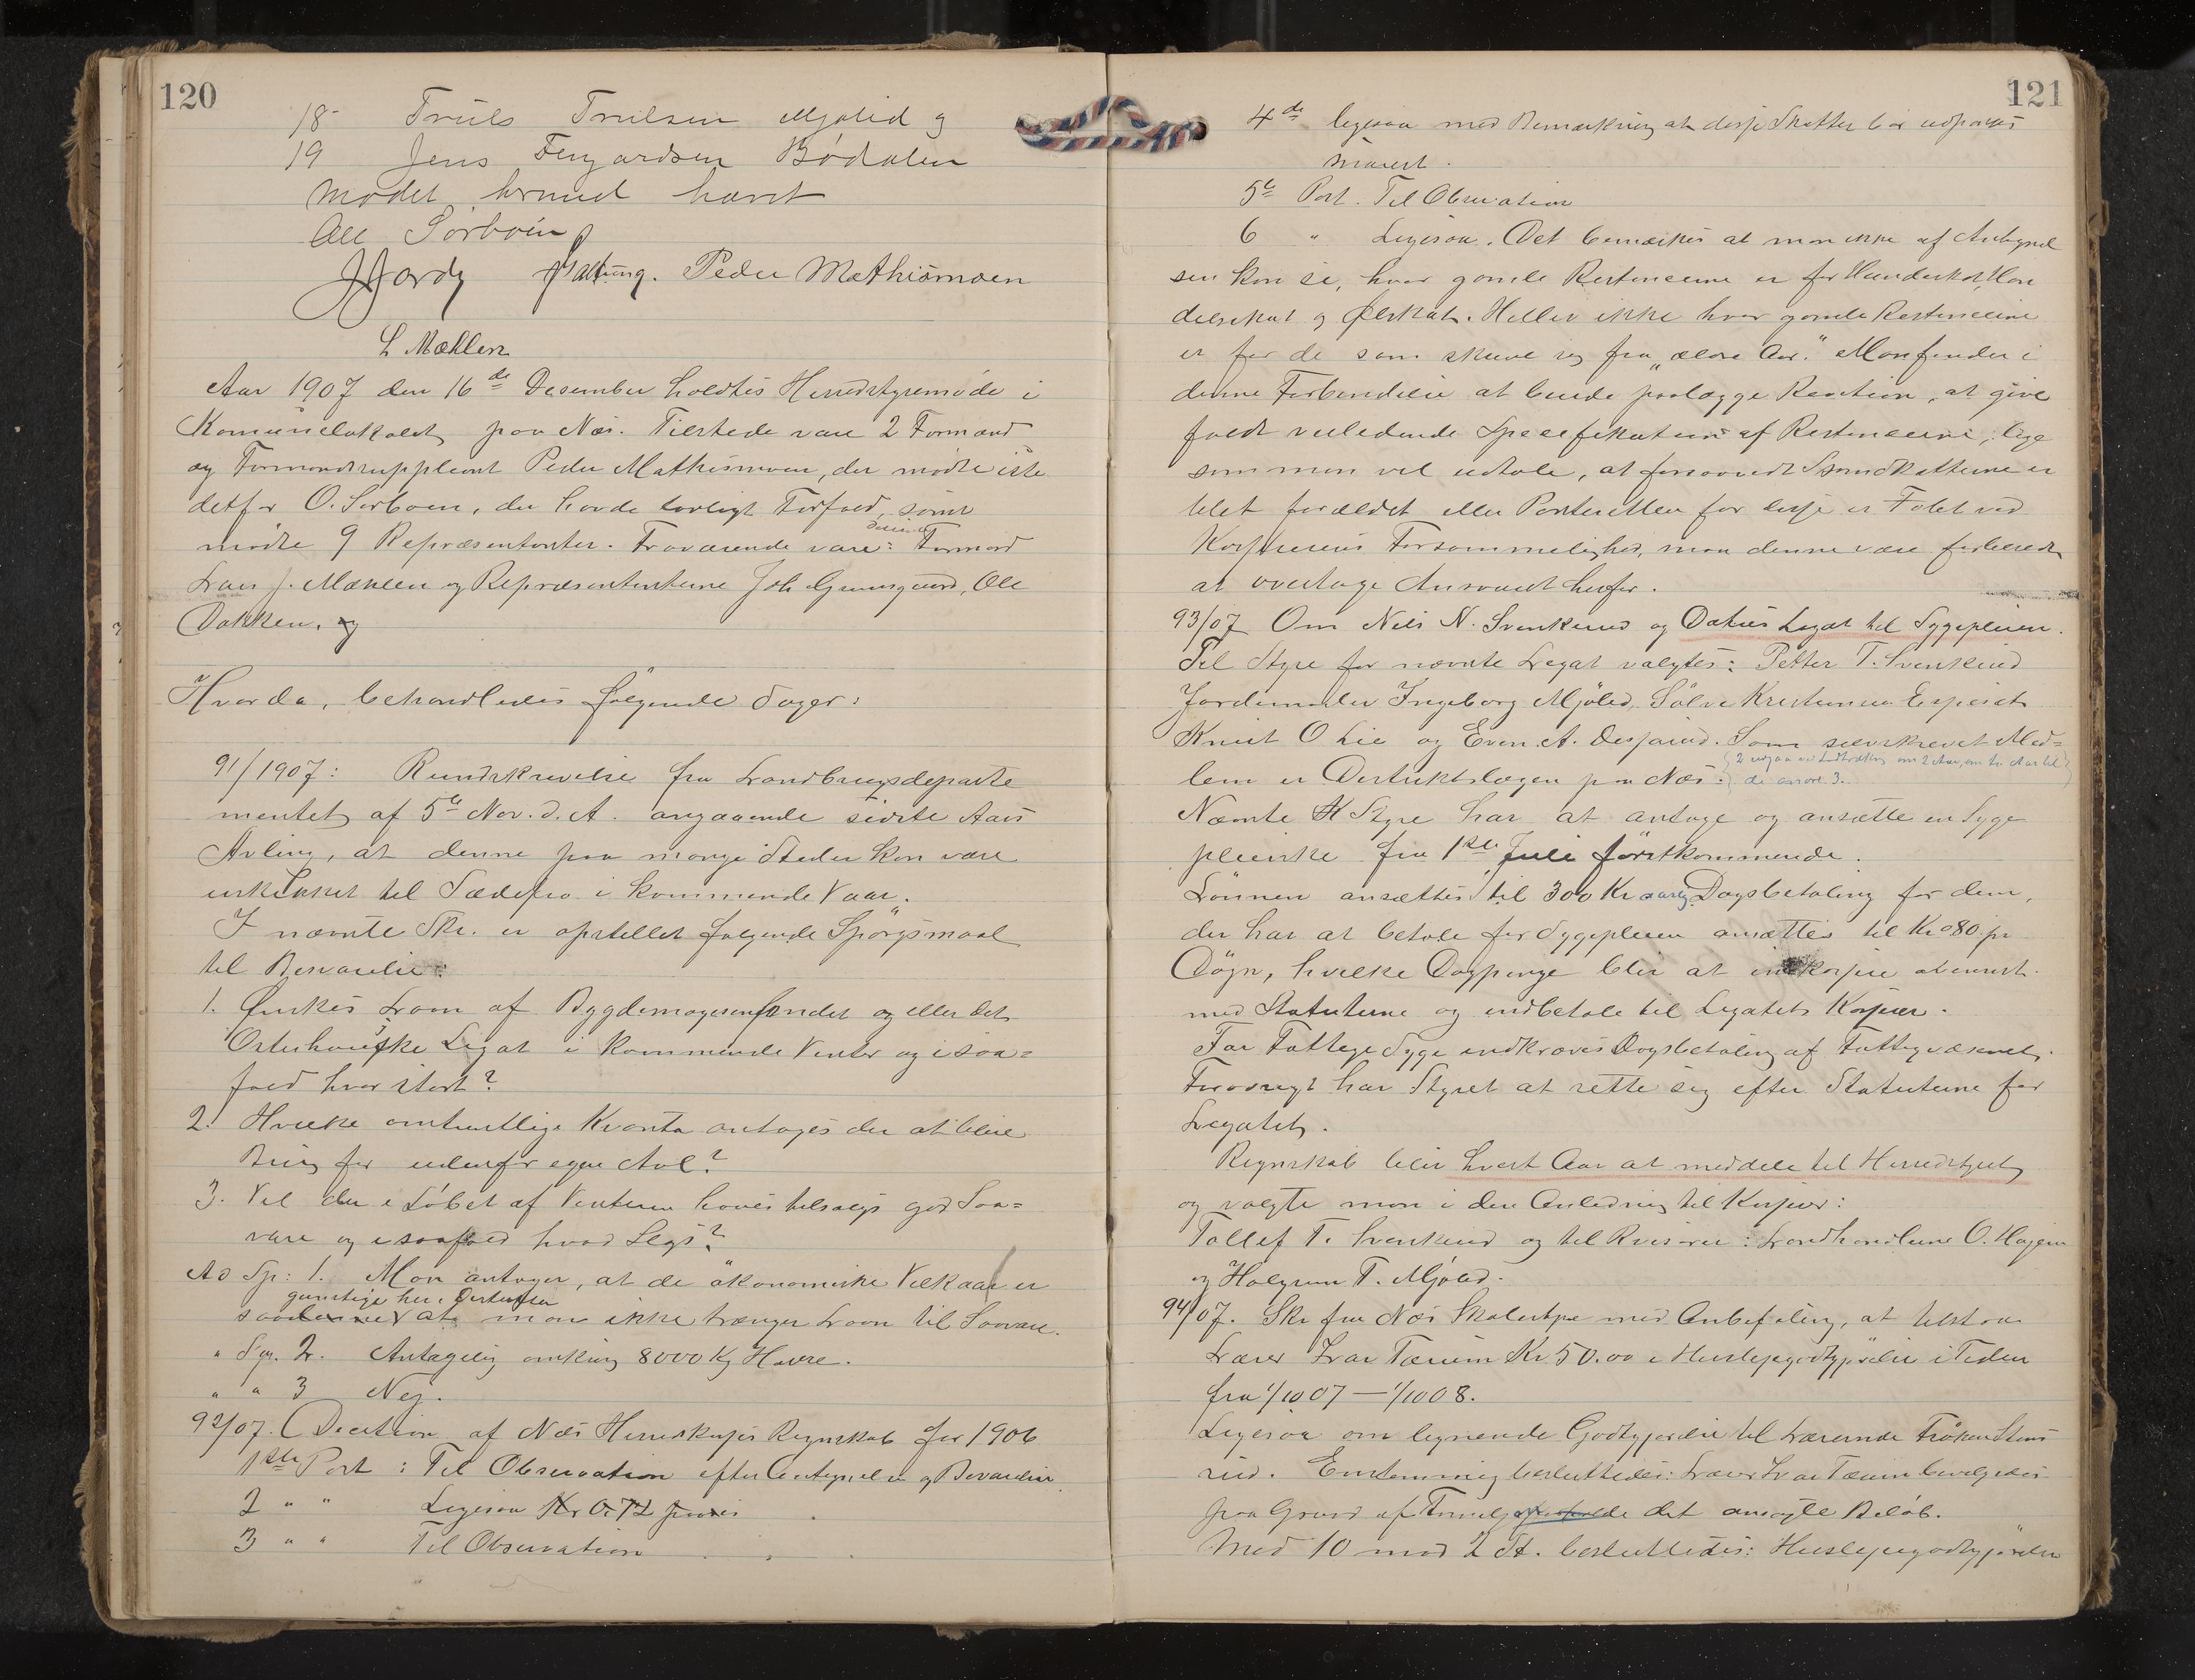 120
18- Truls Trulsen Mjølid og
19 Jens Fingardsen Bødalen
Mødet hermed hævet
Ole Sørbøen
Peder Mathismoen
L Mæhlen
Aar 1907 den 16de Desember holdtes Herredstyremøde i
Komunelokalet paa Næs. Tilstede vare 2 Formænd
og Formandssuppleant Peder Mathismoen, der mødte iste
detfor O. Sørboen, der havde lovligt Forfald, samt
mødte 9 Repræsentanter. Fraværende vare: Formand
Lars J. Mæhlen og Repræsentanterne Joh Gunnsgaard, Ole
Dokken, og
Hvorda, behandledes følgende Sager:
91/1907: Rundskrivelse fra Landbrugsdeparte
mentet af 5te Nov. d. A. angaaende sidste Aars
Avling, at denne paa mange Steder kan være
uskikket til Sædefrø i kommende Vaar.
I nævnte Skr. er opstillet følgende Spørgsmaal
til Besvarelse:
1. Ønskes Laan af Bygdemagasinfondet og eller det
Osterhausiske Legat i kommende Vinter og i saa=
fald hvor stort?
2. Hvilke omtrentlige Kvanta antages der at blive
Brug for udenfor egen Avl?
3. Vil der i Løbet af Vinteren haves tilsalgs god Saa=
vare og i saafald hvad Slags?
Ad Sp: 1. Man antager, at de økonomiske Vilkaar er
gunstige her i Distriktet
saadanne at man ikke trænger Laan til Saavare.
" Sp. 2. Antagelig omkring 8000 Kg Havre.
" " 3 Nej.
92/07. Decition af Næs Herredskasses Regnskab for 1906
1ste Post: Til Observation efter Antegnelsen og Besvarelsen.
2 " " Ligesaa Kr 0.72
3 " " Til Observation
121
4de ligesaa med Bemærkning at disse Skatter bør udpantes
snarest.
5te Post. Til Observation
6 " Ligesaa. Det bemærkes at man ikke af Antegnel
sen kan se, hvor gamle Restancerne er for Hundeskat, Han
delsskat og Ølskat. Heller ikke hvor gamle Restancerne
er for de som skrive sig fra "ældre Aar." Man finder i
denne Forbindelse at burde paalægge Revition, at give
fuldt veiledende Spesefikation af Restancerne, lige
som man vil udtale, at forsaavidt Skatterne er
blet forældet eller Panteretten for disse er Tabt ved
Kassererens Forsømmelighed, maa denne være forberedt
at overtage Ansvaret herfor.
93/07 Om Nils N. Svenkerud og Datters Legat til Sygepleien.
Til Styre for nævnte Legat valgtes: Petter T. Svenkerud
Jordmoder Ingeborg Mjølid, Sølve Kristensen Espeset
Knut O Lie og Even A. Desjarud. Som selvskrevet Med=
lem er Distriktslægen paa Næs.
de andre 3.
Nævnte Styre har at antage og ansætte en Syge
pleierske fra 1ste Juli førstkommende.
Lønnen ansættes til 300 Kr aarlig. Dagsbetaling for dem,
der har at betale for Sygepleien ansættes til Kr 0.80 pr
Døgn, hvilke Dagpenge blir at indkassere
med Statuterne og indbetale til Legatets Kasserer.
For Fattige Syge indkræves Dagsbetaling af Fattigvæsenet.
Forøvrigt har Styret at rette sig efter Statuterne for
Legatet.
Regnskab blir hvert Aar at meddele til Herredstyret
og valgte man i den Anledning til Kasserer:
Tollef T. Svenkerud og til Revisorer: Landhandlerne O. Hagen
og Halgrim T. Mjølid.
94/07. Skr. fra Næs Skolestyre med Anbefaling, at tilstaa
Lærer Ivar Tærum Kr. 50.00 i Huslejegodtgjørelse i Tiden
fra 1/10 07 – 1/10 08.
Ligesaa om lignende Godtgjørelse til Lærerinde Frøken Stens
rud. Enstemmig besluttedes: Lærer Ivar Tærum bevilgedes
paa Grund af det ansøgte Beløb.
Med 10 mod 2 St. besluttedes: Huslejegodtgjørelse